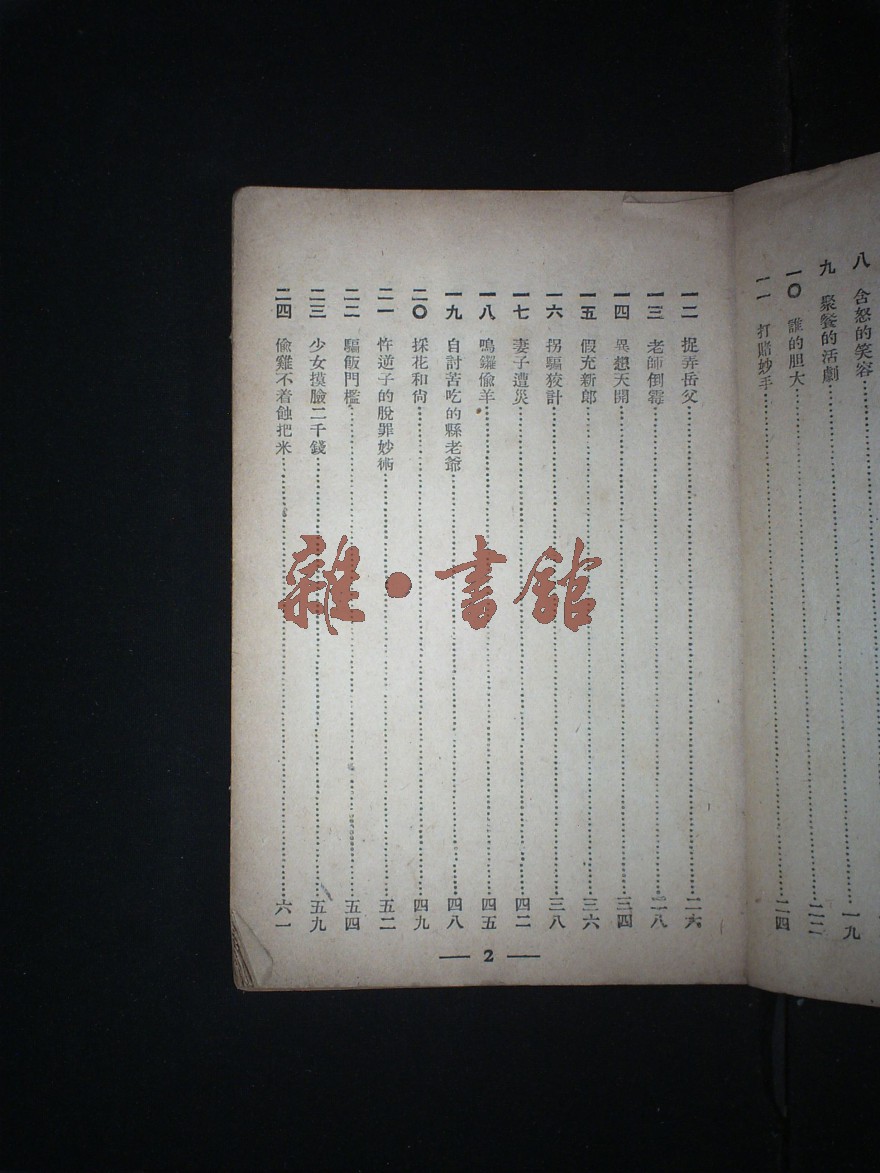 八 含怒的笑容……一九
九 聚餐的活劇……二二
一〇 誰的胆大……二四
一一 打賭妙手
一二 捉弄岳父……二六
一三 老師倒霉……二八
一四 異想天開……三四
一五 假充新郎……三六
一六 拐騙狡計……三八
一七 妻子遭災……四二
一八 鳴鑼偷羊……四五
一九 自討苦吃的縣老爺……四八
二〇 採花和尚……四九
二一 忤逆子的脫罪妙術……五二
二二 騙飯門檻……五四
二三 少女摸臉二千錢……五九
二四 偷雞不着蝕把米……六一
— 2 —
雜·書館